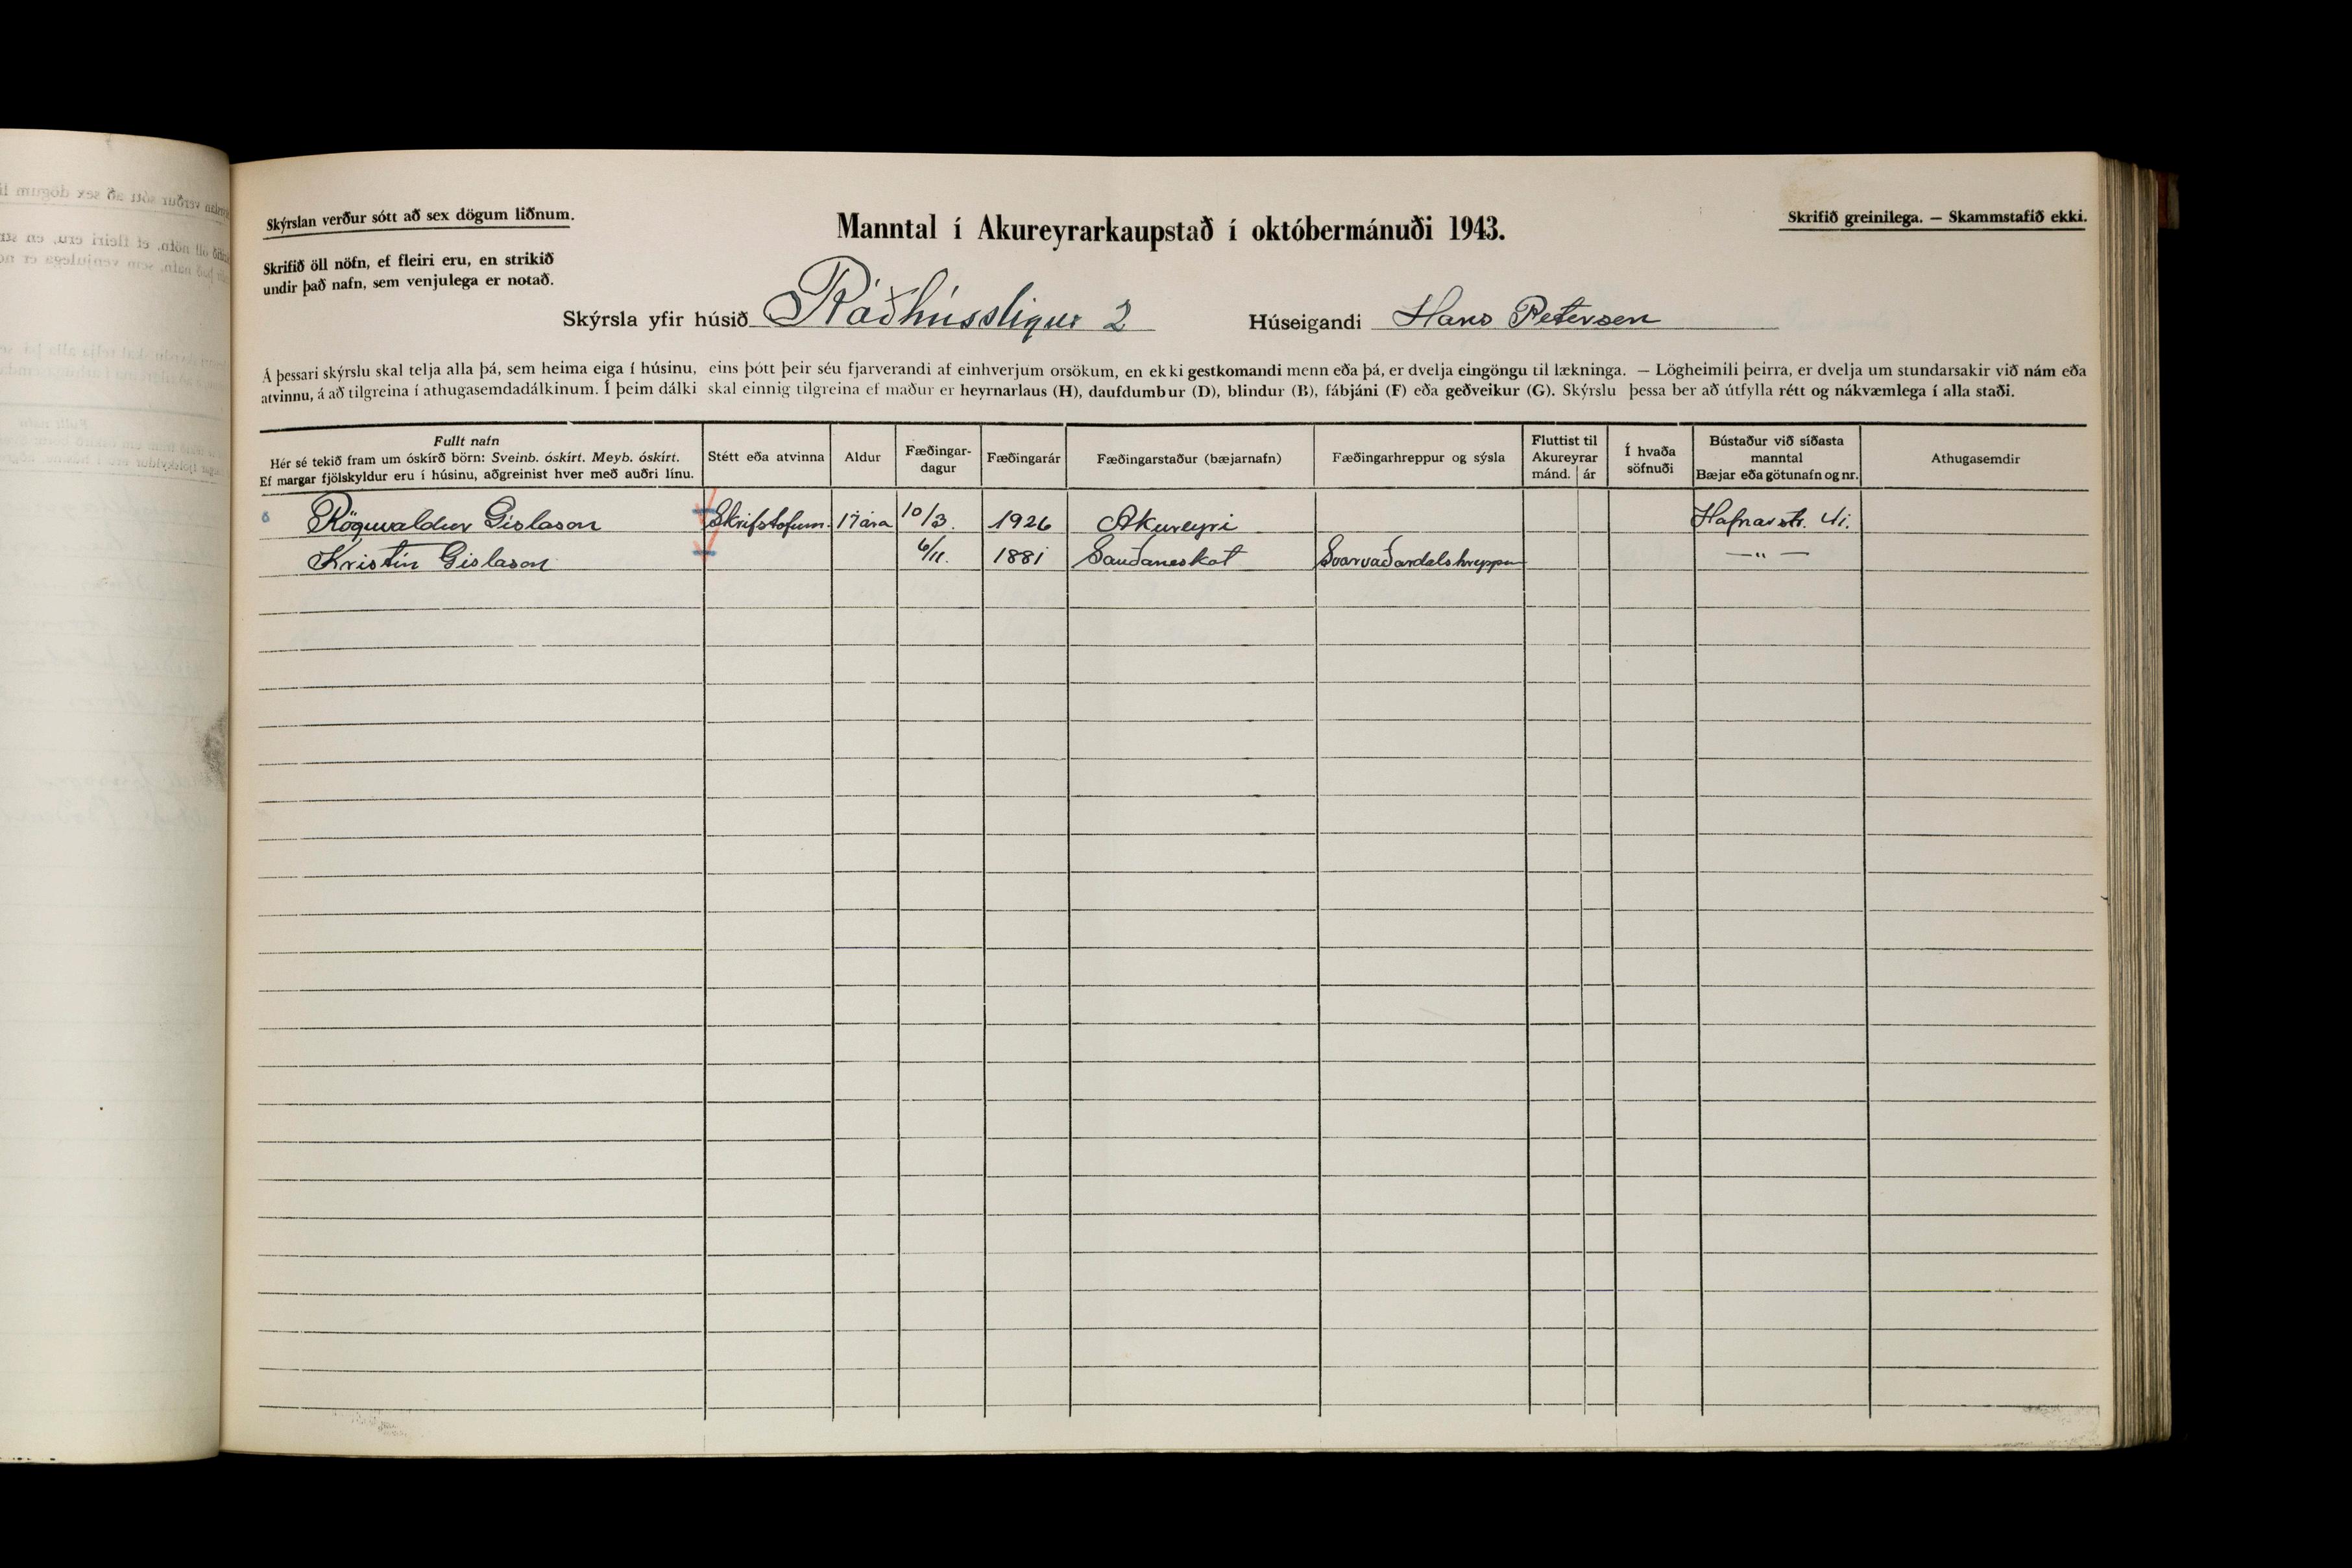 Skýrslan verður sótt að sex dögum liðnum.
Skrifið öll nöfn, ef fleiri eru, en strikið
undir það nafn, sem venjulega er notað.
Manntal í Akureyrarkaupstað í októbermánuði 1943.
Skrifið greinilega. — Skammstafið ekki.
Skýrsla yfir húsið Ráðhússtigur 2 Húseigandi Hans Petersen
Á þessari skýrslu skal telja alla þá, sem heima eiga í húsinu, eins þótt þeir séu fjarverandi af einhverjum orsökum, en ekki gestkomandi menn eða þá, er dvelja eingöngu til lækninga. — Lögheimili þeirra, er dvelja um stundarsakir við nám eða
atvinnu, á að tilgreina í athugasemdadálkinum. Í þeim dálki skal einnig tilgreina ef maður er heyrnarlaus (H), daufdumbur (D), blindur (B), fábjáni (F) eða geðveikur (G). Skýrslu þessa ber að útfylla rétt og nákvæmlega í alla staði.
Fullt nafn
Hér sé tekið fram um óskírð börn: Sveinb. óskírt. Meyb. óskírt.
Ef margar fjölskyldur eru í húsinu, aðgreinist hver með auðri línu.
Stétt eða atvinna
Aldur
Fæðingar-
dagur
Fæðingarár
Fæðingarstaður (bæjarnafn)
Fæðingarhreppur og sýsla
Fluttist til
Akureyrar
mánd. ár
Í hvaða
söfnuði
Bústaður við síðasta
manntal
Bæjar eða götunafn og nr.
Athugasemdir
Rögnvaldur Gíslason Skrifstofum. 17 ára 10/3. 1926 Akureyri Hafnarstr.
Kristín Gíslason 6/11. 1881 Sauðaneskot Svarvaðardalshreppur —"—